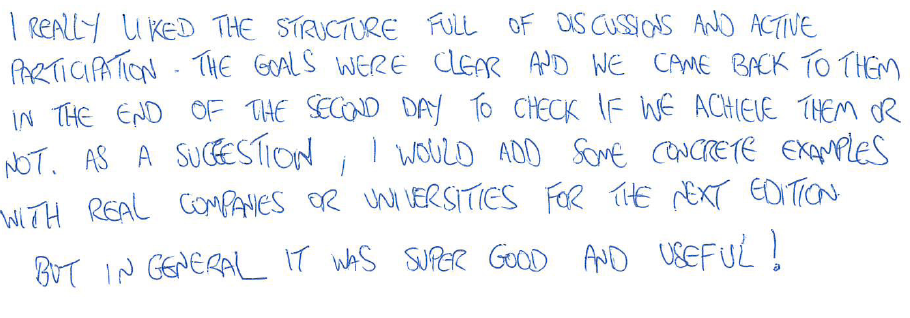 I REALLY LIKED THE STRUCTURE FULL OF DISCUSSIONS AND ACTIVE
PARTICIPATION. THE GOALS WERE CLEAR AND WE CAME BACK TO THEM
IN THE END OF THE SECOND DAY TO CHECK IF WE ACHIEVE THEM OR
NOT. AS A SUGGESTION, I WOULD ADD SOME CONCRETE EXAMPLES
WITH REAL COMPANIES OR UNIVERSITIES FOR THE NEXT EDITION.
BUT IN GENERAL IT WAS SUPER GOOD AND USEFUL!